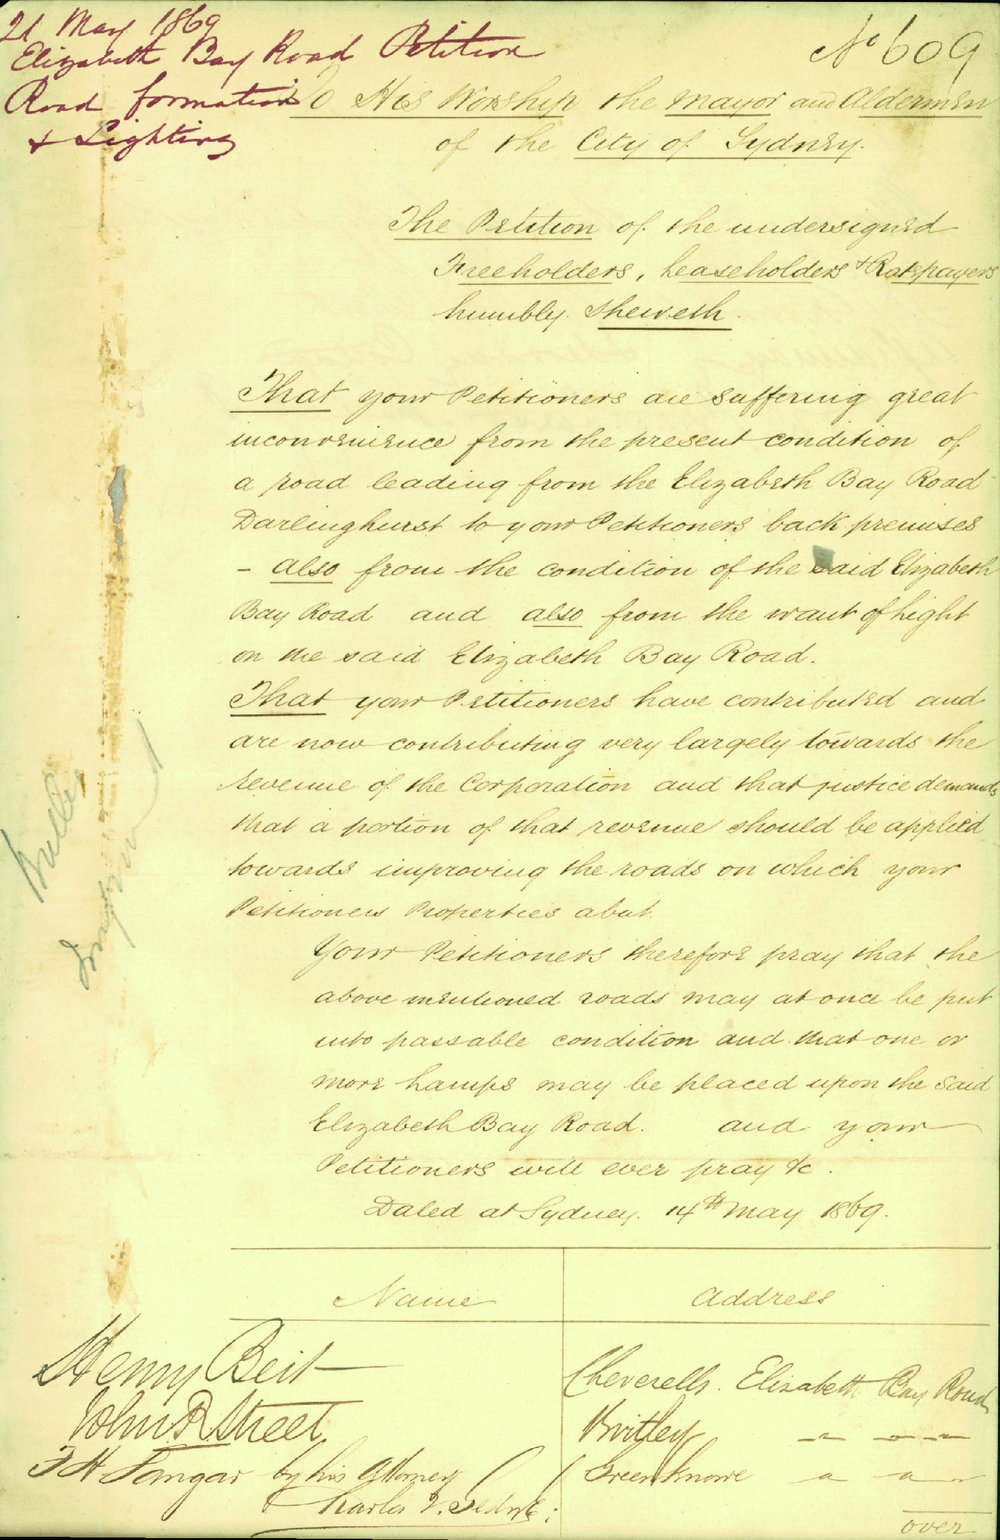 21 May 1869
Elizabeth Bay Road Petition
Road formation
& Lighting
No 609
To His Worship the Mayor and Aldermen
of the City of Sydney.
The Petition of the undersigned
Freeholders, Leaseholders & Ratepayers
humbly sheweth.
That your Petitioners are suffering great
inconvenience from the present condition of
a road leading from the Elizabeth Bay Road
Darlinghurst to your Petitioners back premises
- also from the condition of the said Elizabeth
Bay Road and also from the want of Light
on the said Elizabeth Bay Road.
That your Petitioners have contributed and
are now contributing very largely towards the
revenue of the Corporation and that justice demands
that a portion of that revenue should be applied
towards improving the roads on which your
Petitioners Properties abut.
Your Petitioners therefore pray that the
above mentioned roads may at once be put
into passable condition and that one or
more Lamps may be placed upon the said
Elizabeth Bay Road. and your
Petitioners will ever pray &c.
Dated at Sydney. 14th May 1869.
Name Address
Henry Beit Cheverells. Elizabeth Bay Road
John R Street
F H by his Attorney Greenknowe
Charles
over